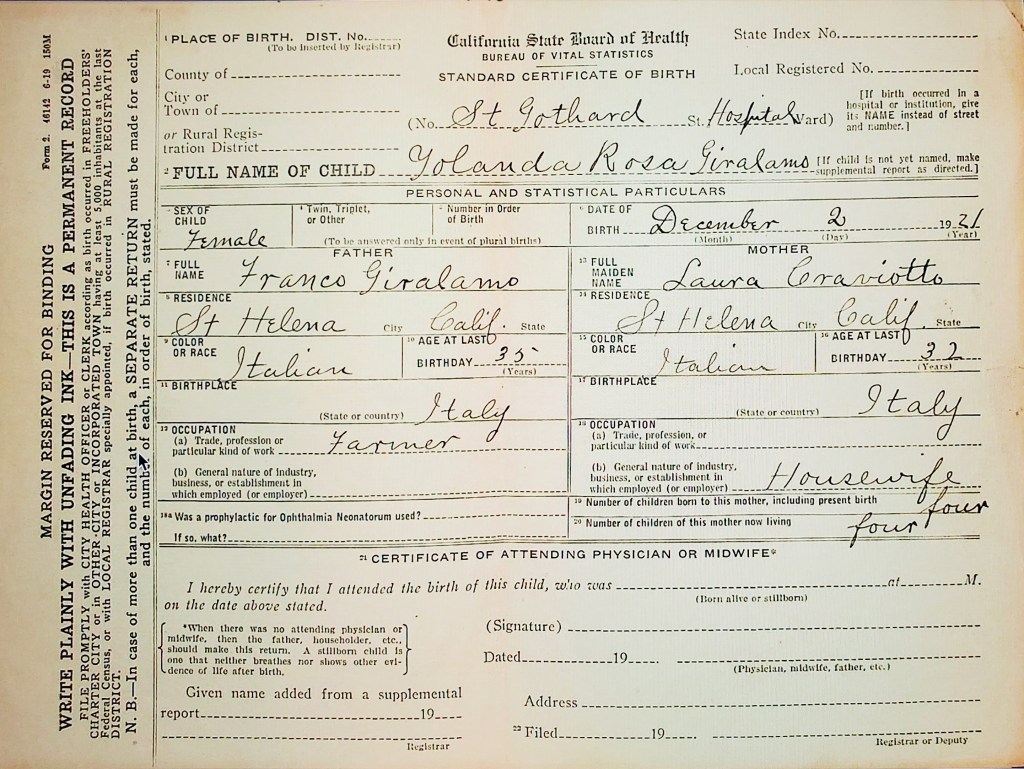 MARGIN RESERVED FOR BINDING Form 2. 46142 6-19 150M
WRITE PLAINLY WITH UNFADING INK—THIS IS A PERMANENT RECORD
FILE PROMPTLY with CITY HEALTH OFFICER or CLERK according as birth occurred in FREEHOLDERS'
CHARTER CITY or in OTHER CITY or INCORPORATED TOWN having at least 5,000 inhabitants at the last
Federal Census, or with LOCAL REGISTRAR specially appointed, if birth occurred in RURAL REGISTRATION
DISTRICT.
N. B.—In case of more than one child at birth, a SEPARATE RETURN must be made for each,
and the number of each, in order of birth, stated.
1 PLACE OF BIRTH. DIST. No.
(To be Inserted by Registrar)
County of
City or
Town of
or Rural Regis-
tration District
California State Board of Health
BUREAU OF VITAL STATISTICS
STANDARD CERTIFICATE OF BIRTH
State Index No.
Local Registered No.
(No. St Gothard St. Hospital Ward)
[If birth occurred in a
hospital or institution, give
its NAME instead of street
and number.]
2 FULL NAME OF CHILD Yolanda Rosa Giralamo [If child is not yet named, make
supplemental report as directed.]
PERSONAL AND STATISTICAL PARTICULARS
SEX OF
CHILD Female
4 Twin, Triplet,
or Other
Number in Order
of Birth
(To be answered only in event of plural births)
6 DATE OF
BIRTH December 2 1921
(Month) (Day) (Year)
FATHER
7 FULL
NAME Franco Giralamo
8 RESIDENCE
St Helena City Calif. State
9 COLOR
OR RACE Italian
10 AGE AT LAST
BIRTHDAY 35
(Years)
11 BIRTHPLACE
(State or country) Italy
12 OCCUPATION
(a) Trade, profession or
particular kind of work Farmer
(b) General nature of industry,
business, or establishment in
which employed (or employer)
18a Was a prophylactic for Ophthalmia Neonatorum used?
If so, what?
MOTHER
13 FULL
MAIDEN
NAME Laura Craviotto
14 RESIDENCE
St Helena City Calif. State
15 COLOR
OR RACE Italian
16 AGE AT LAST
BIRTHDAY 32
(Years)
17 BIRTHPLACE
(State or country) Italy
18 OCCUPATION
(a) Trade, profession, or
particular kind of work
(b) General nature of industry,
business, or establishment in
which employed (or employer) Housewife
19 Number of children born to this mother, including present birth four
20 Number of children of this mother now living four
21 CERTIFICATE OF ATTENDING PHYSICIAN OR MIDWIFE*
I hereby certify that I attended the birth of this child, who was at M.
(Born alive or stillborn)
on the date above stated.
*When there was no attending physician or
midwife, then the father, householder, etc.,
should make this return. A stillborn child is
one that neither breathes nor shows other evi-
dence of life after birth.
Given name added from a supplemental
report 19
Registrar
(Signature)
Dated 19
(Physician, midwife, father, etc.)
Address
22 Filed 19
Registrar or Deputy